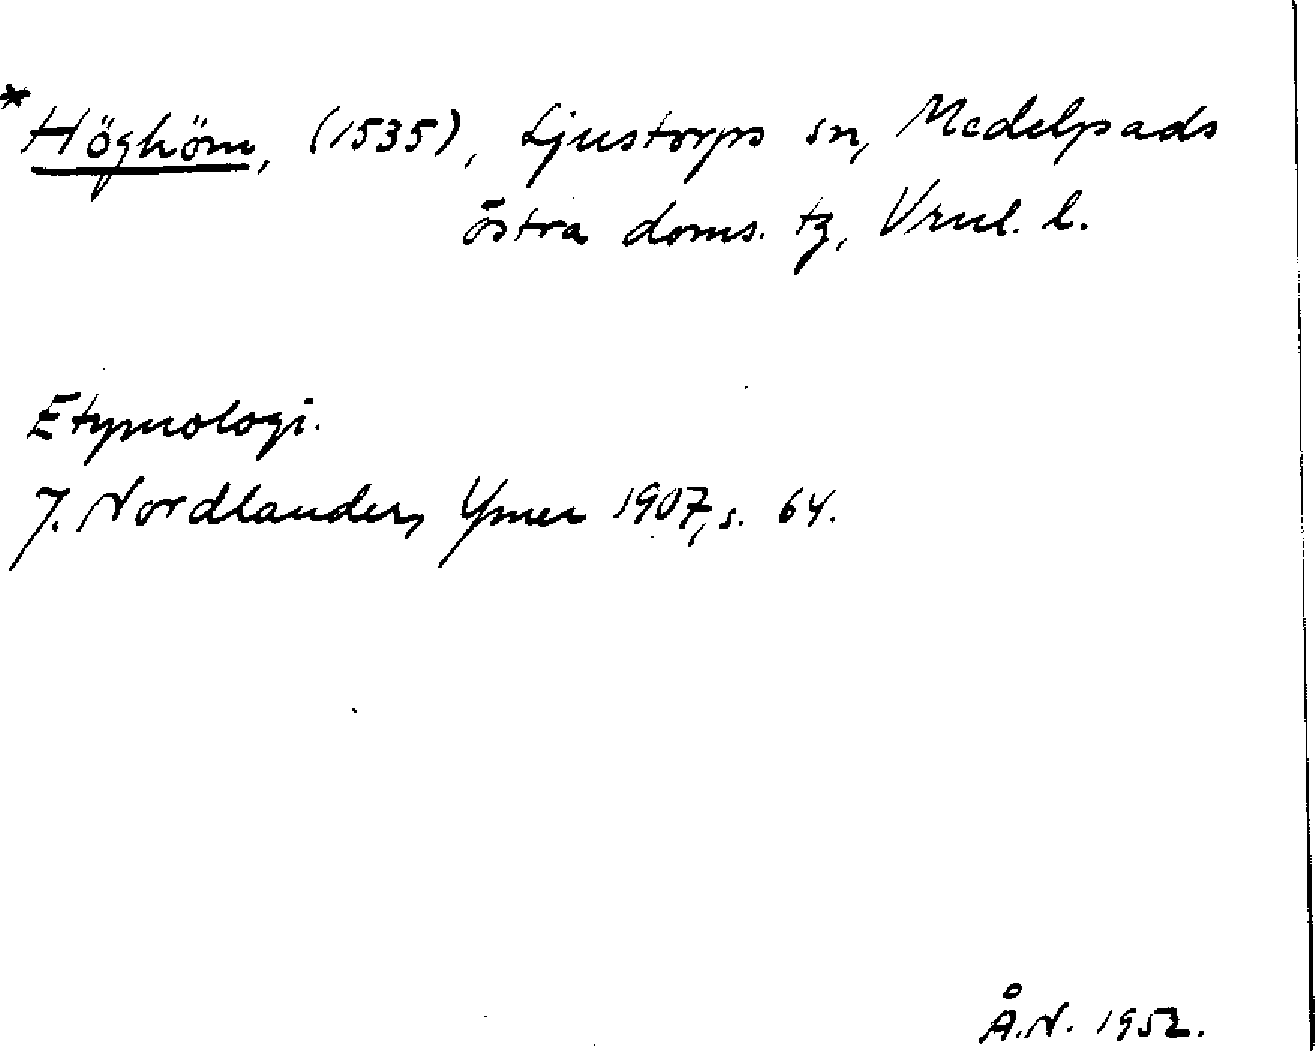 *Höghöm, (1535), Ljustorps sn, Medelpads
östra doms. tg, Vrnl. l.
Etymologi.
J. Nordlander, Ymer 1907, s. 64.
Å.N. 1952.